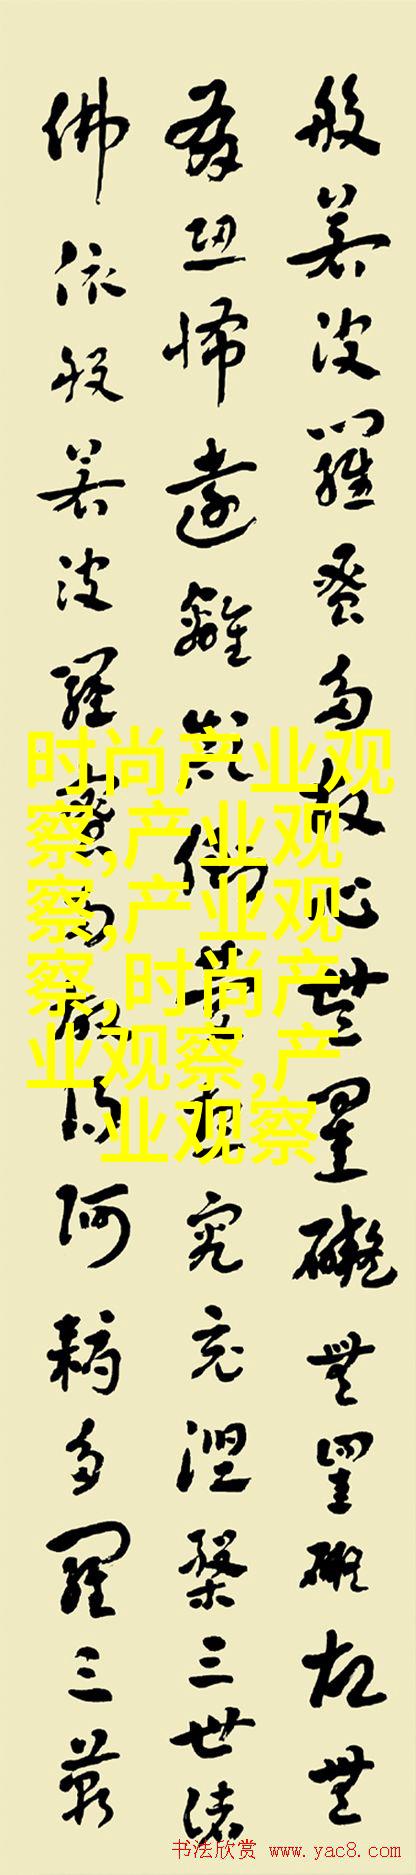 般若波羅蜜多故心無罣礙無罣礙故無
有恐怖遠離顛倒夢想究竟涅槃三世諸
佛依般若波羅蜜多故得阿耨多羅三藐
时尚产业观
察,产业观
察,产业观
察,时尚产
业观察,产
业观察
书法欣赏 www.yac8.com